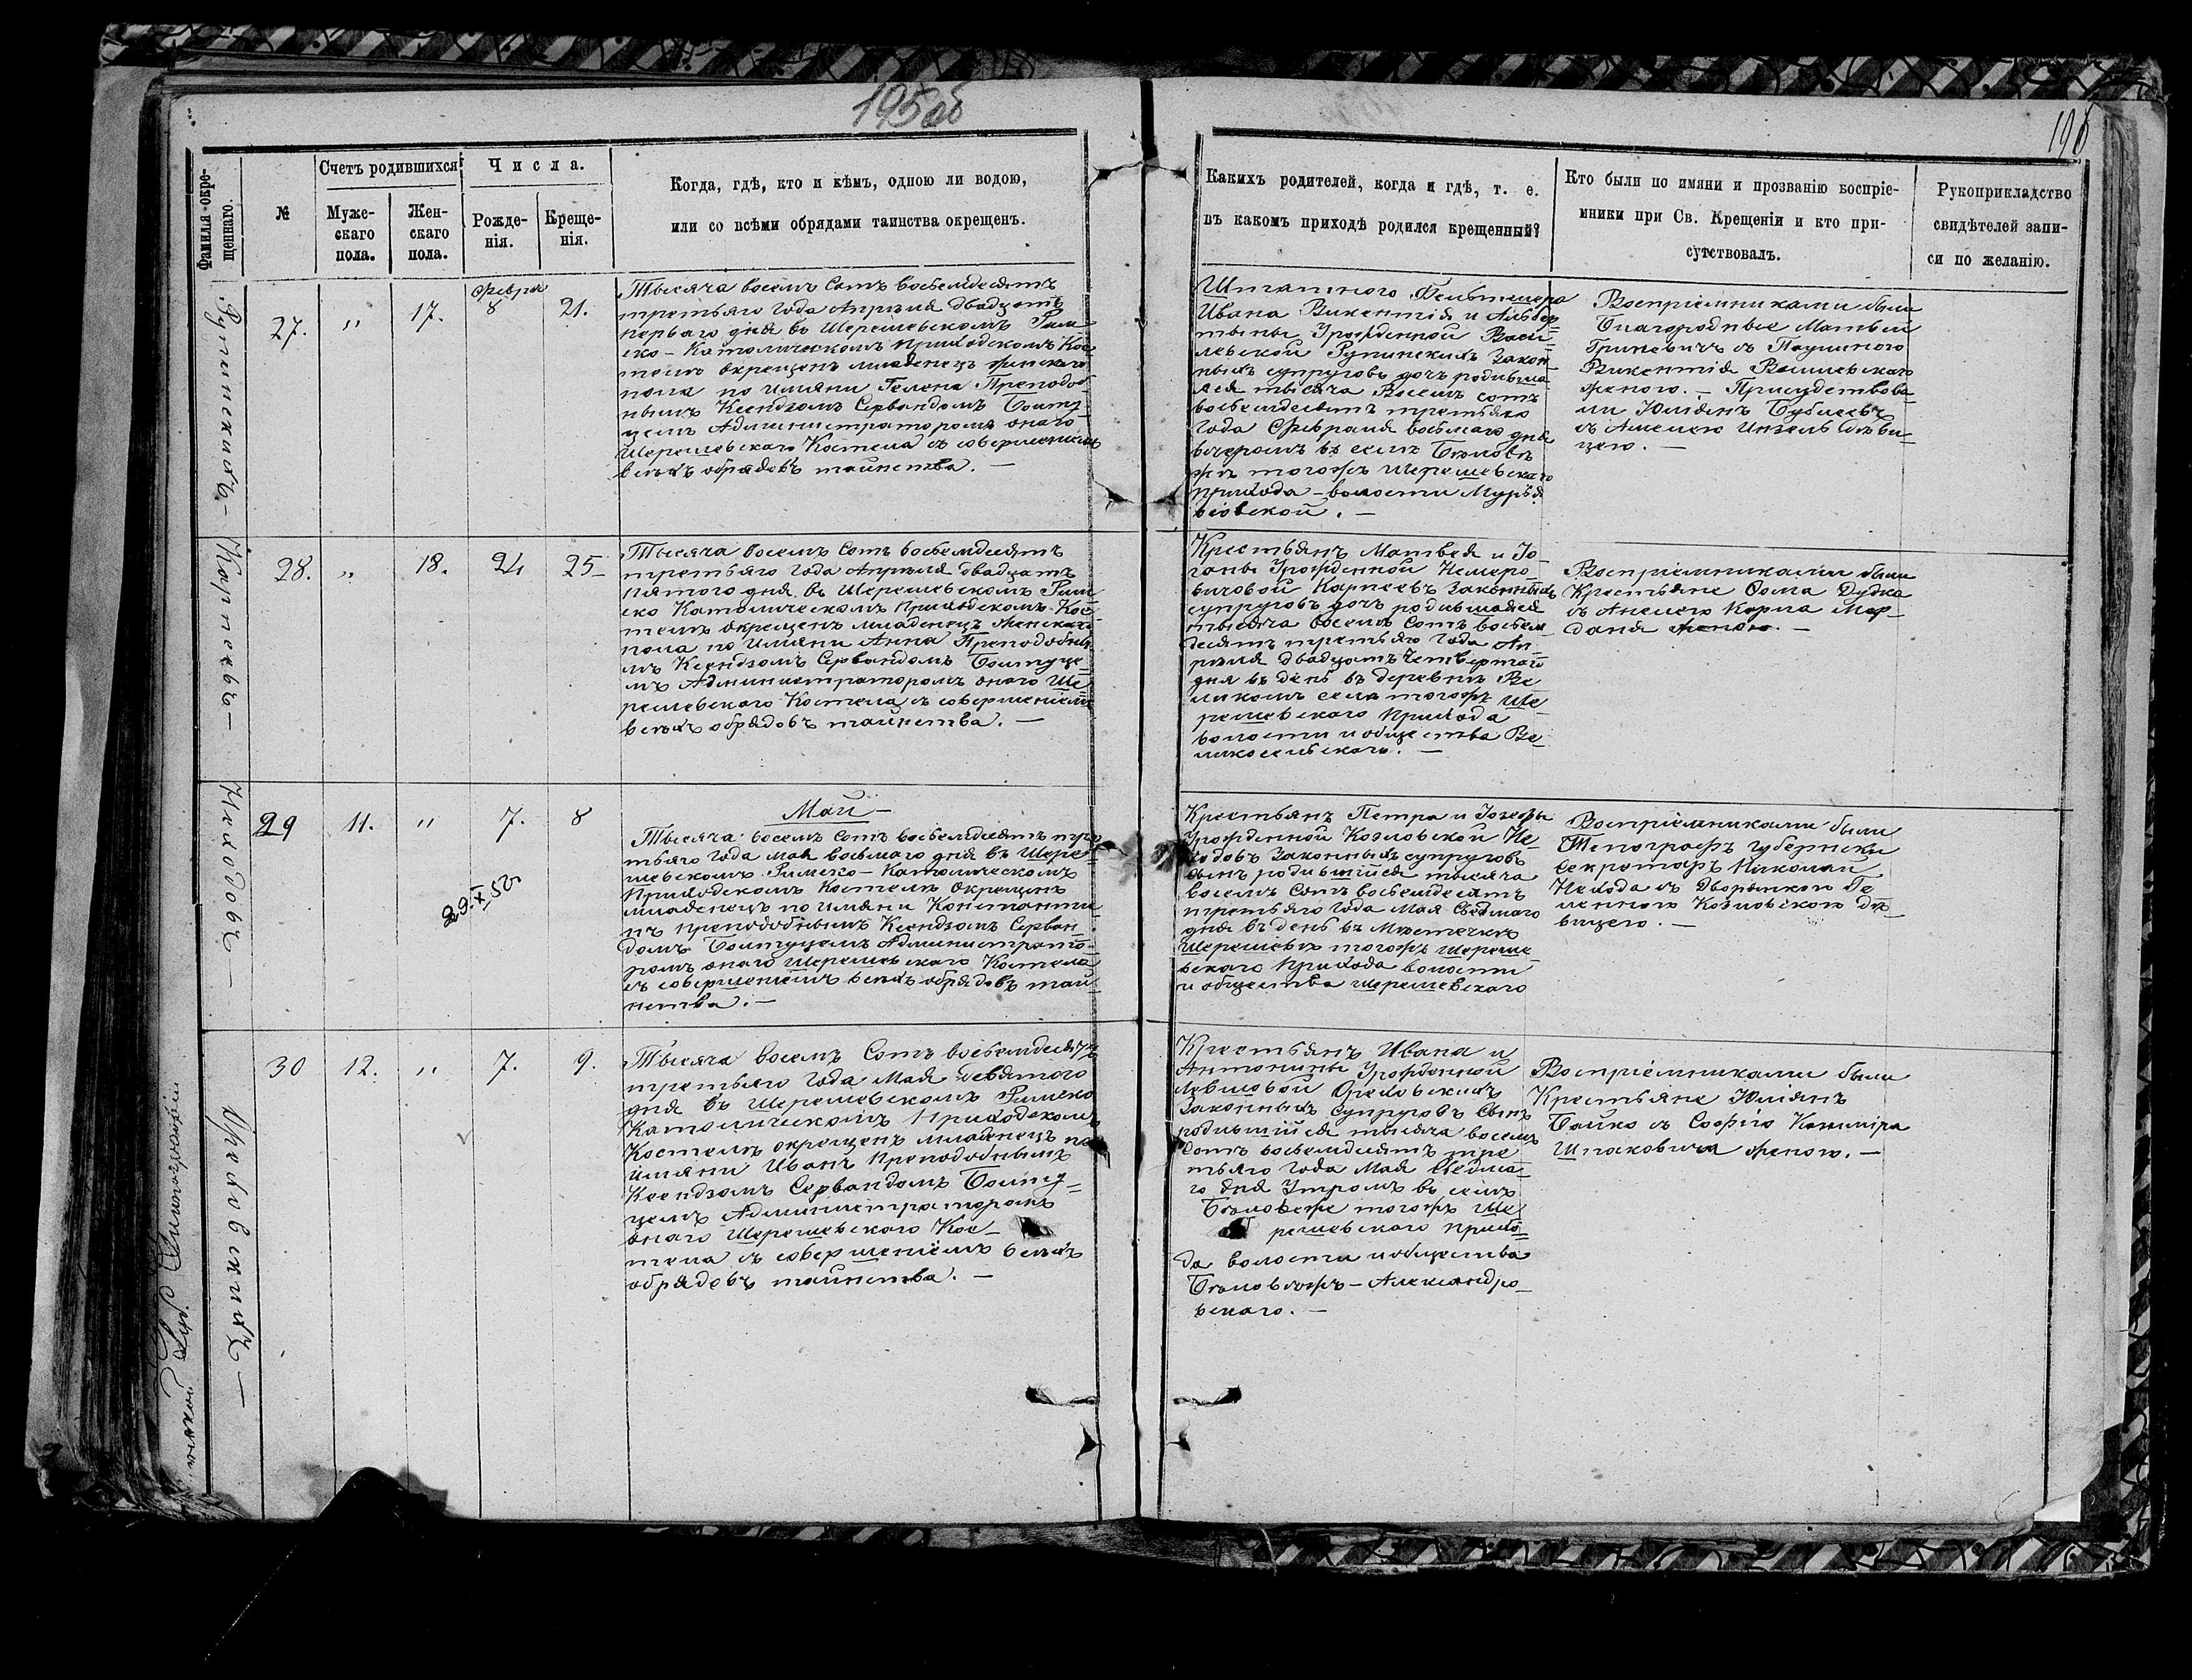 195 об
196
Фамилія окре-
щеннаго.
№
Счетъ родившихся
Муже-
скаго
пола.
Жен-
скаго
пола.
Числа.
Рожде-
нія.
Креще-
нія.
Когда, гдѣ, кто и кѣмъ, одною ли водою,
или со всѣми обрядами таинства окрещенъ.
Какихъ родителей, когда и гдѣ, т. е.
въ какомъ приходѣ родился крещенный?
Кто были по имяни и прозванію воспріе-
мники при Св. Крещеніи и кто при-
сутствовалъ.
Рукоприкладство
свидѣтелей запи-
си по желанію.
Рупинскихъ –
27.
"
17.
Февраля
8
21.
Тысяча восемъ сотъ восьмдесятъ
третьяго года Апрѣля двадцать
перваго дня въ Шерешевскомъ Рим
ско-Католическомъ Приходскомъ Кос
телѣ окрещенъ младенецъ женскаго
пола по имяни Гелена Преподоб
нымъ Ксендзомъ Сервандомъ Болту_
цемъ Администраторомъ онаго
Шерешевскаго Костела съ совершеніемъ
всѣхъ обрядовъ таинства. –
Штатного Фельдшера
Ивана Викентія и Альбер
тины Урожденной Васи
левской Рупинскихъ закон
ныхъ супруговъ дочь родивша
яся тысяча восемъ сотъ
восьмдесятъ третьяго
года Февраля восьмаго дня
вечеромъ въ селѣ Бѣловѣ
жѣ тогожъ Шерешевскаго
прихода – волости Мурья
віовской. –
Воспріемниками были
Благородные Матвей
Гриневичъ съ Паулиною
Викентія Василевскаго
женою. – Присудствова
ли Юліянъ Бублевъ
съ Амелею Инзель дѣви_
цею. –
Карпеевъ –
28.
"
18.
24
25
Тысяча восемъ сотъ восьмдесятъ
третьяго года Апрѣля двадцать
пятого дня въ Шерешевскомъ Рим
ско Католическомъ Приходскомъ Кос
телѣ окрещенъ младенецъ женскаго
пола по имяни Анна Преподобны
мъ Ксендзомъ Сервандомъ Болтуце
мъ Администраторомъ онаго Ше
решевскаго Костела съ совершеніемъ
всѣхъ обрядовъ таинства. –
Крестьянъ Матвея и Іо
ганы Урожденной Немеро
вичовой Карпеевъ законныхъ
супруговъ дочь родившаяся
тысяча восемъ сотъ восьм
десятъ третьяго года Ап
рѣля двадцать четвертаго
дня въ день въ деревнѣ Ве
ликомъ селѣ тогожъ Ше
решевскаго Прихода
волости и общества Ве
ликосельскаго. –
Воспріемниками были
Крестьяне Ѳома Дудка
съ Анелею Карпа Мар_
даня женою. –
Неходовъ –
29
11.
"
7.
8
29.X.52г
Май –
Тысяча восемъ сотъ восьмдесятъ тре
тьяго года Мая восьмаго дня въ Шере
шевскомъ Римско-Католическомъ
Приходскомъ Костелѣ окрещенъ
младенецъ по имяни Константи
нъ Преподобнымъ Ксендзомъ Серван_
домъ Болтуцемъ Администрато_
ромъ онаго Шерешевскаго Костела
съ совершеніемъ всѣхъ обрядовъ таи
нства. –
Крестьянъ Петра и Іозефы
Урожденной Козловской Не
ходовъ законныхъ супруговъ
сынъ родившійся тысяча
восемъ сотъ восьмдесятъ
третьяго года Мая седмаго
дня въ день въ Мѣстечкѣ
Шерешевѣ тогожъ Шереше
вскаго Прихода волости
и общества Шерешевскаго
Воспріемниками были
Губернски
Секретарь Николай
Нехода съ Дворянкою Ге
леною Козловскою дѣ
вицею. –
Ореховскихъ –
30
12.
"
7.
9.
Тысяча восемъ сотъ восьмдесятъ
третьяго года Мая девятого
дня въ Шерешевскомъ Римско
Католическомъ Приходскомъ
Костелѣ окрещенъ младенецъ по
имяни Иванъ Преподобнымъ
Ксендзомъ Сервандомъ Болту_
цемъ Администраторомъ
онаго Шерешевскаго Кос_
тела съ совершеніемъ всѣхъ
обрядовъ таинства. –
Крестьянъ Ивана и
Антонины Урожденной
Левшовой Ореховскихъ
законныхъ супруговъ сынъ
родившійся тысяча восемъ
сотъ восьмдесятъ тре
тьяго года Мая седма_
го дня утромъ въ селѣ
Бѣловеже тогожъ Ше
решевскаго прихо
да волости и общества
Бѣловѣжъ-Александро_
вскаго. –
Воспріемниками были
Крестьяне Юліянъ
Бойко съ Софіею Казиміра
Шпаковича женою. –